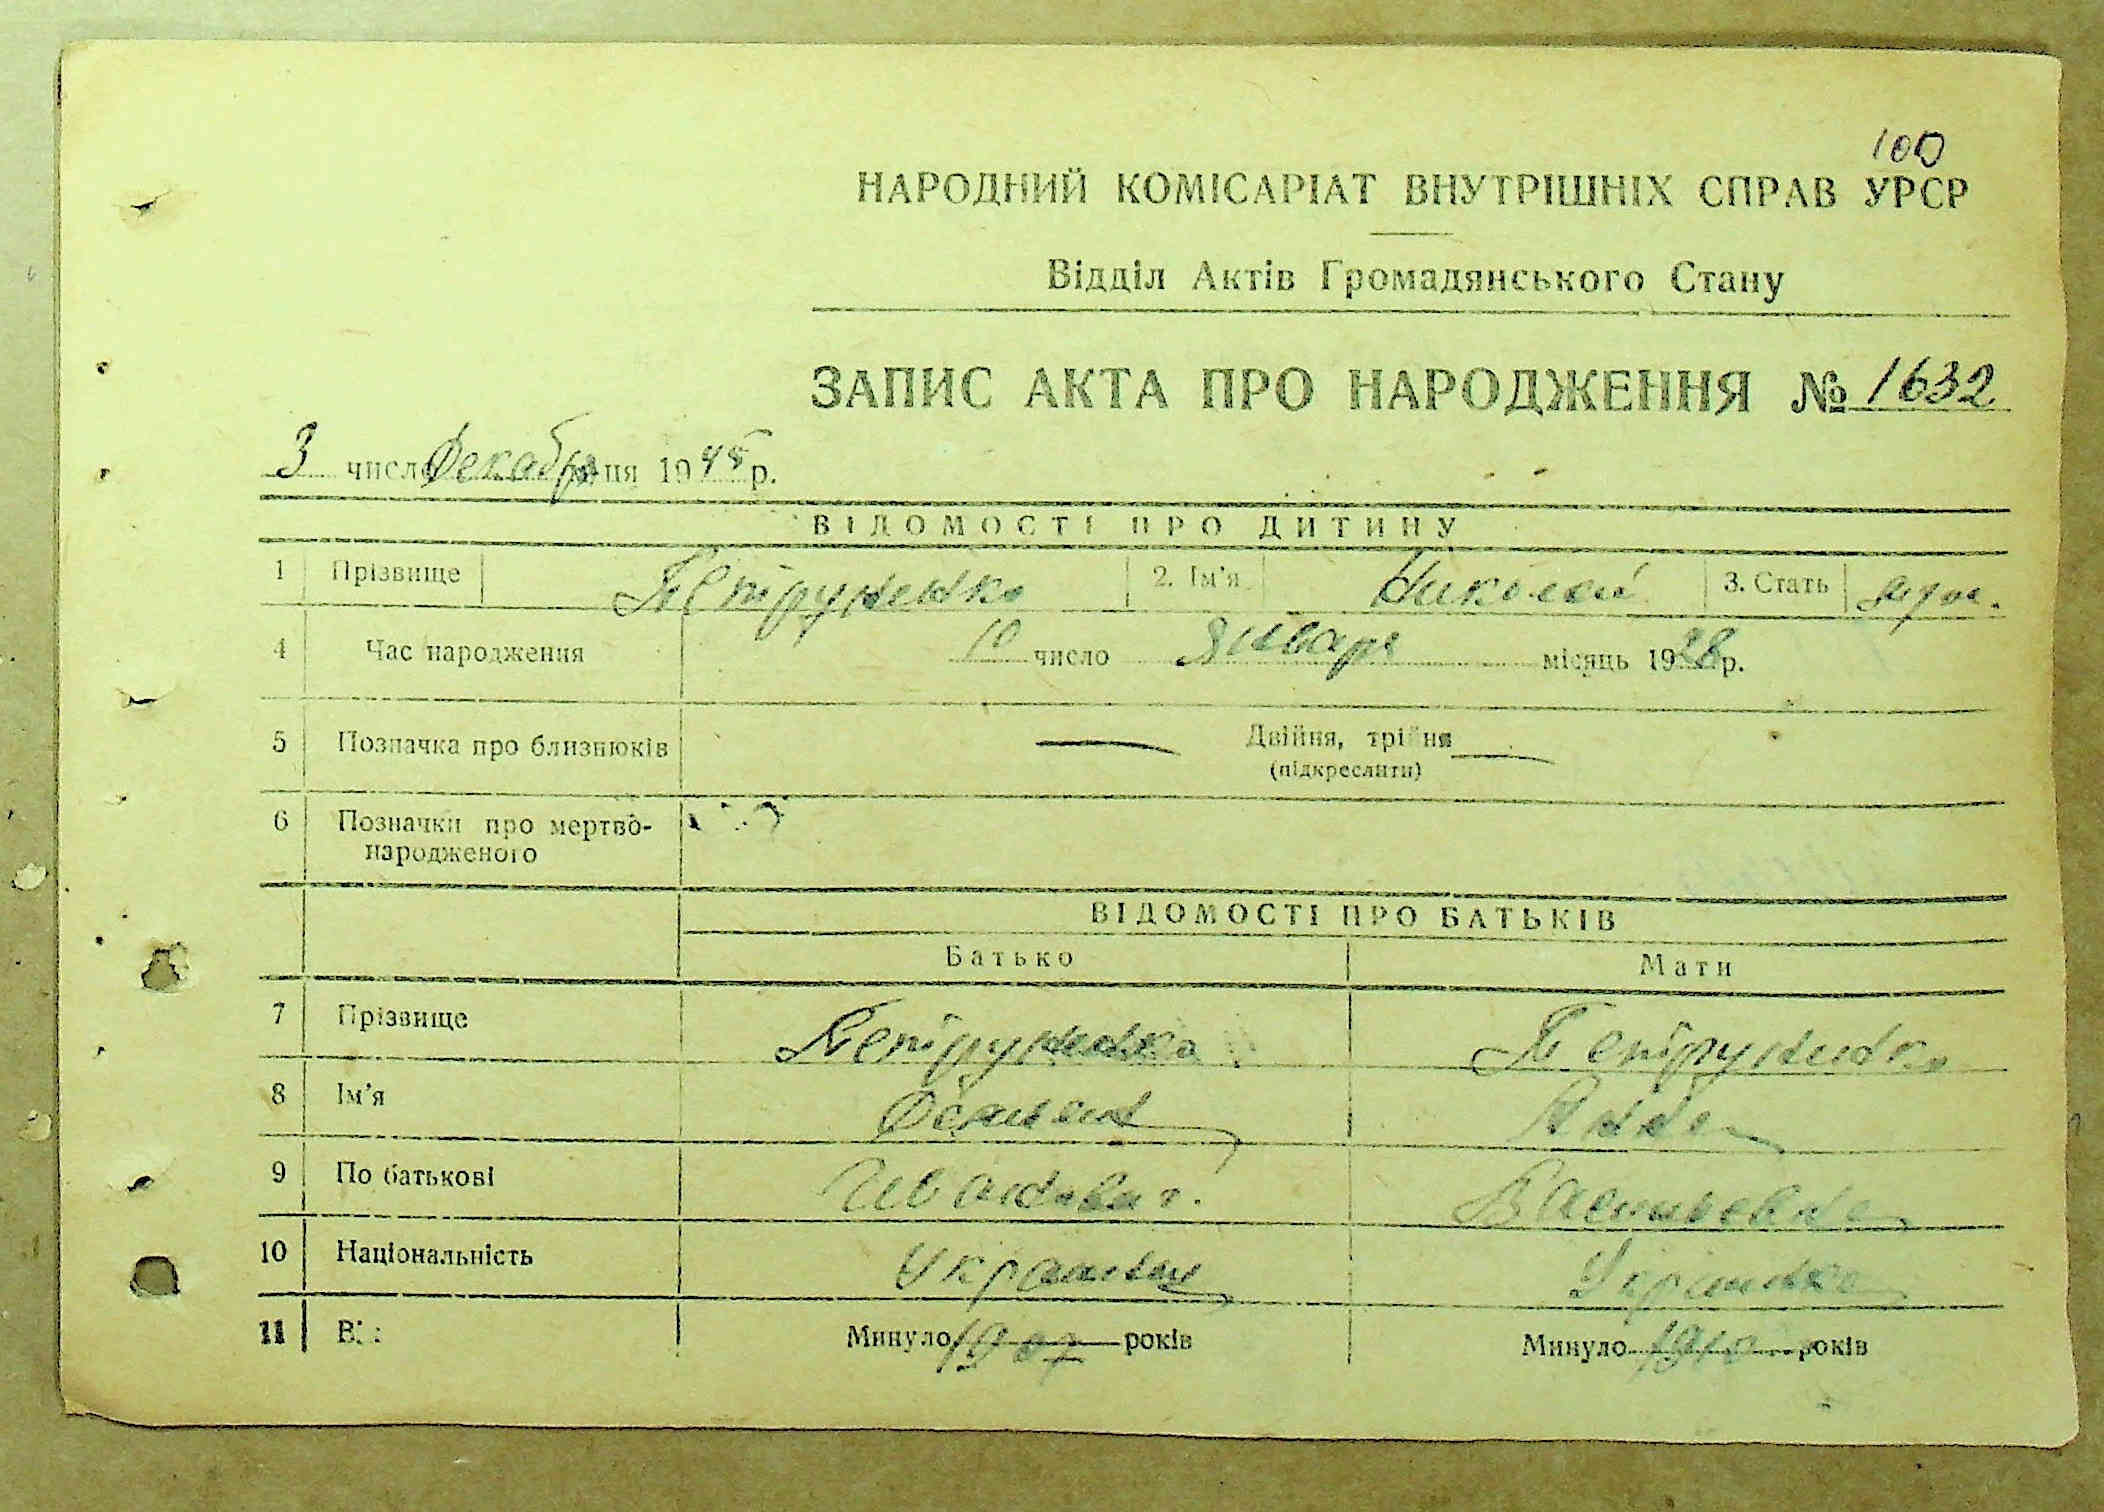 100
НАРОДНИЙ КОМІСАРІАТ ВНУТРІШНІХ СПРАВ УРСР
Відділ Актів Громадянського Стану
ЗАПИС АКТА ПРО НАРОДЖЕННЯ № 1632
3 число Декабря 1945 р.
ВІДОМОСТІ ПРО ДИТИНУ
1 Прізвище Петруненко 2. Ім'я Николай 3. Стать муж.
4 Час народження 10 число Января місяць 1928 р.
5 Позначка про близнюків — Двійня, трійня —
(підкреслити)
6 Позначки про мертво-
народженого
ВІДОМОСТІ ПРО БАТЬКІВ
Батько Мати
7 Прізвище Петруненко Петруненко
8 Ім'я Анна
9 По батькові Иванович. Васильевна
10 Національність Украинец Украинка
11 Минуло 1907 років Минуло 1910 років